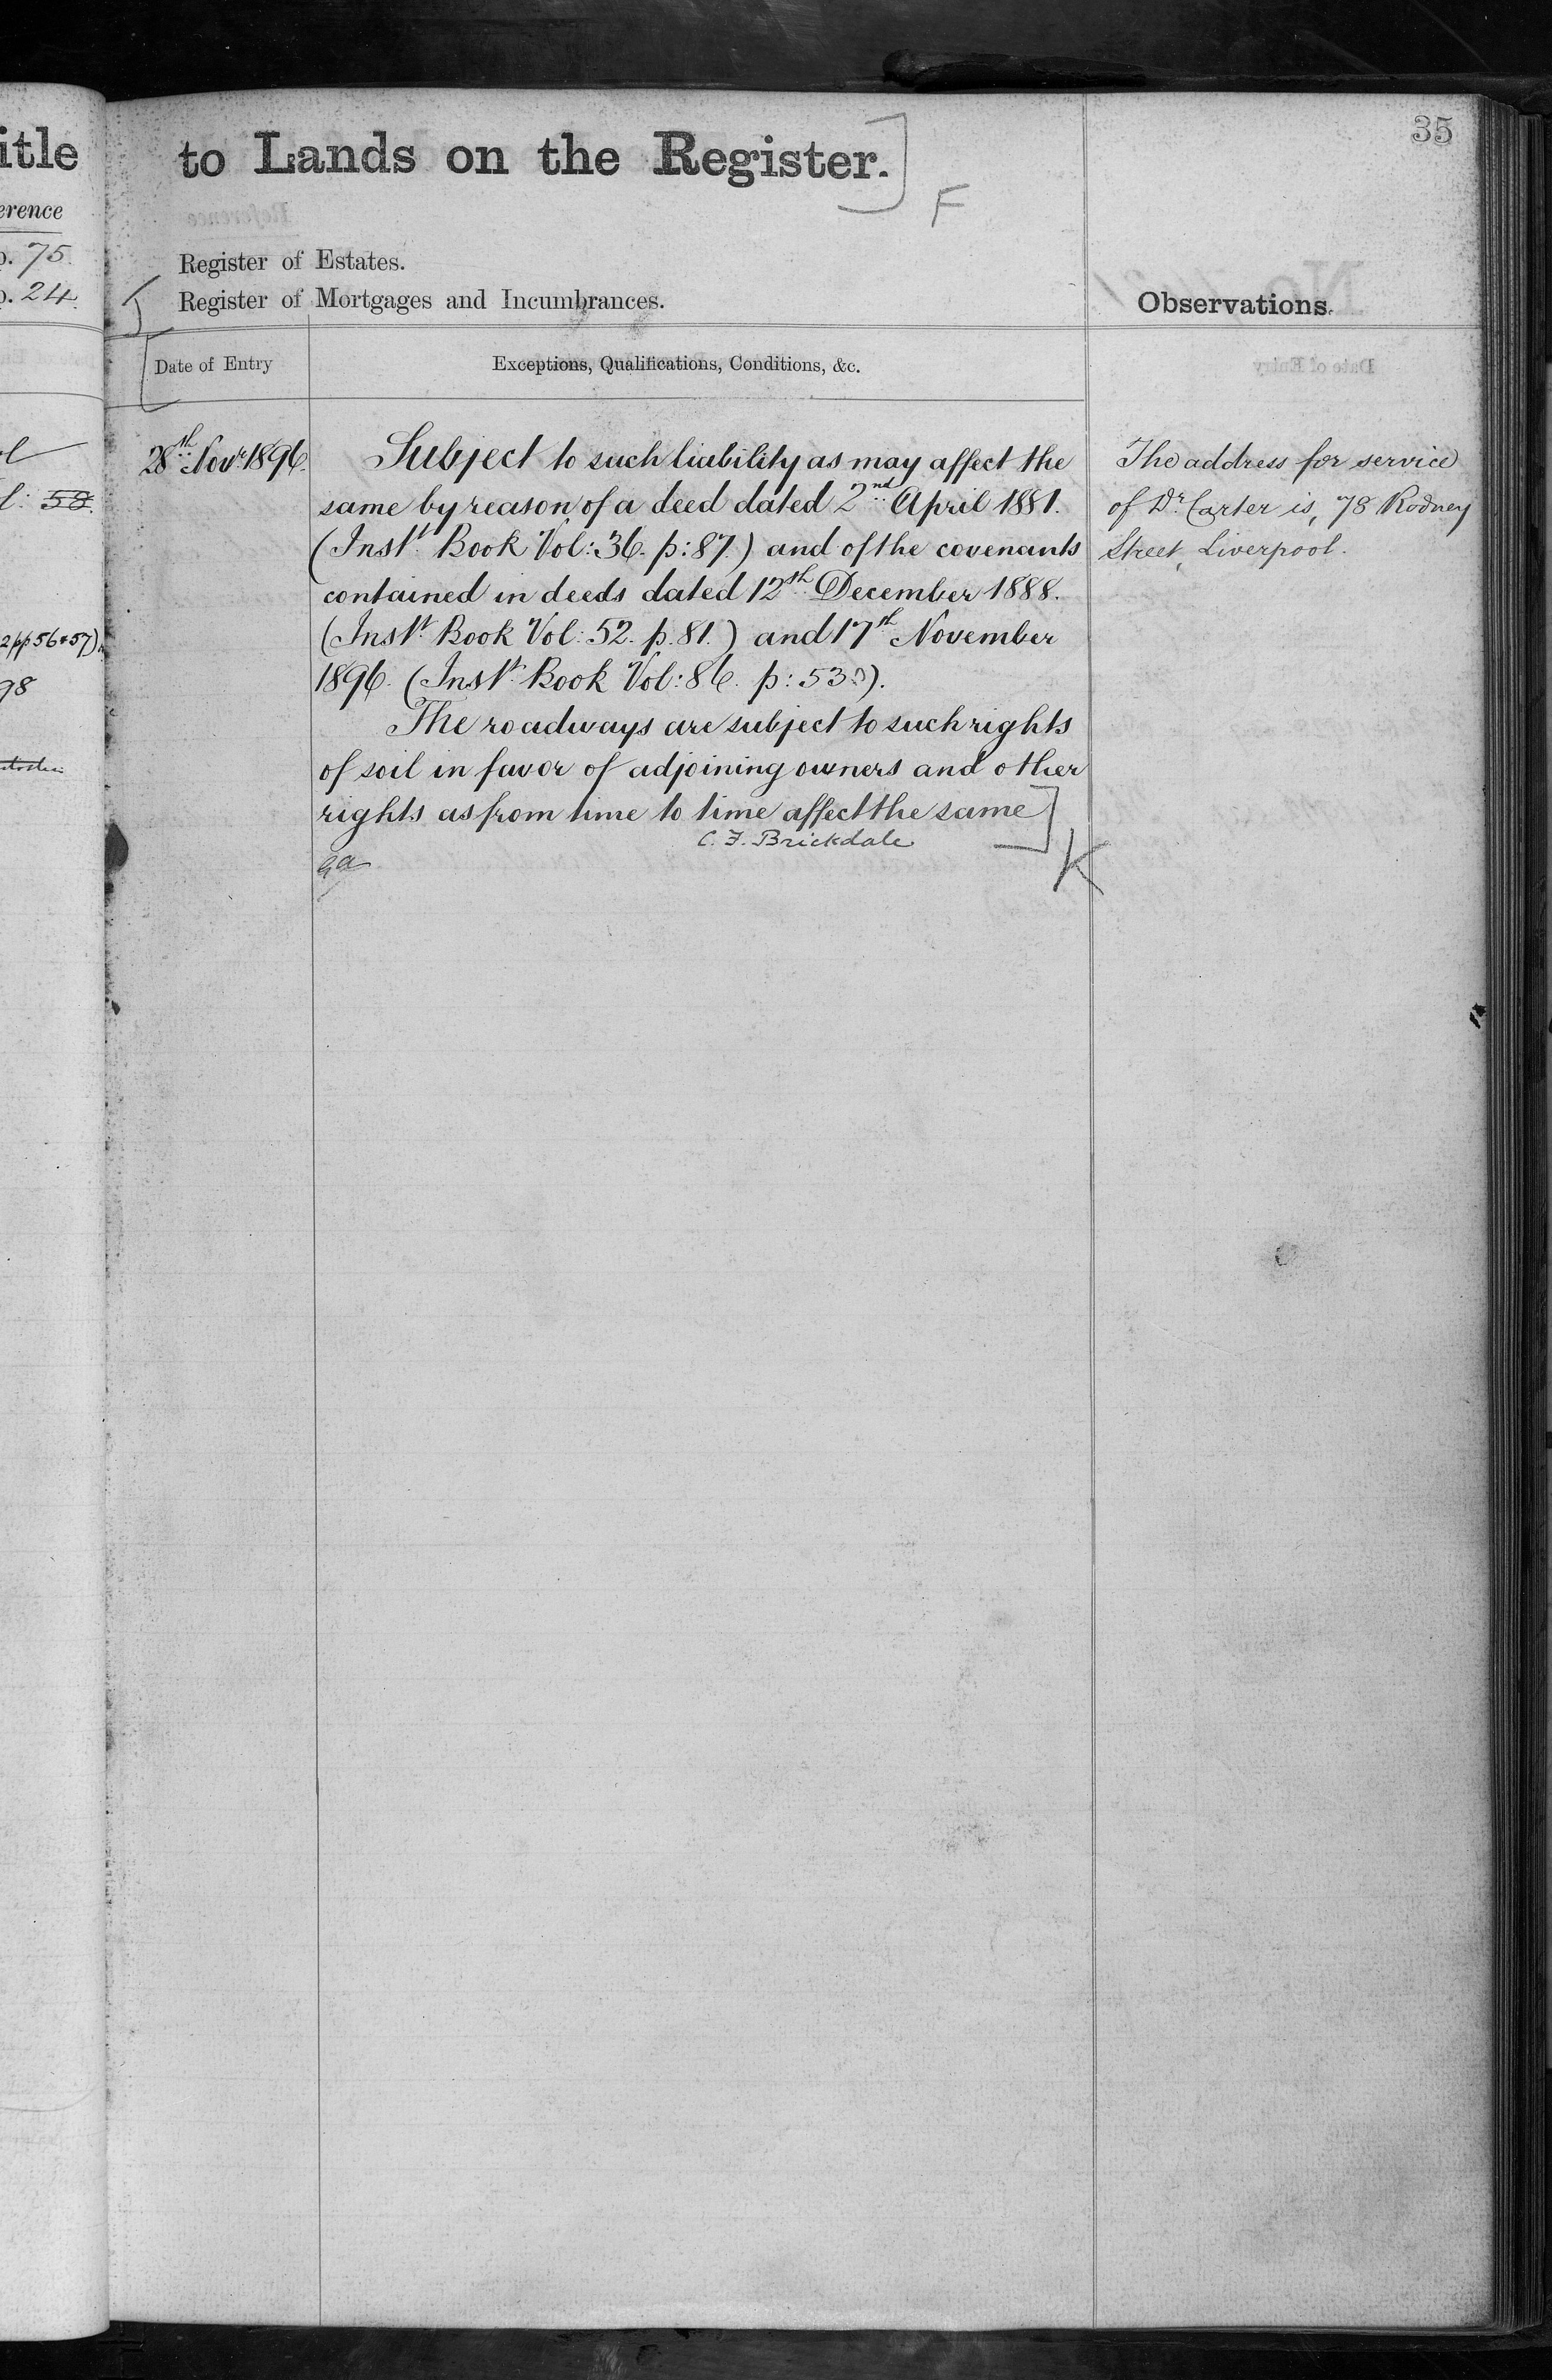 itle
erence
p. 75
p. 24
l: 58.
2 pp 56 & 57)
98
35
to Lands on the Register.
F
Register of Estates.
Register of Mortgages and Incumbrances.
Observations.
Date of Entry
Exceptions, Qualifications, Conditions, &c.
28th Novr 1896.
Subject to such liability as may affect the
same by reason of a deed dated 2nd April 1881.
(Instt Book Vol: 36. p: 87.) and of the covenants
contained in deeds dated 12th December 1888.
(Instt Book Vol: 52. p. 81.) and 17th November
1896. (Instt Book Vol: 86. p: 53).
The roadways are subject to such rights
of soil in favor of adjoining owners and other
rights as from time to time affect the same
C. F. Brickdale
K
The address for service
of Dr Carter is, 78 Rodney
Street, Liverpool.